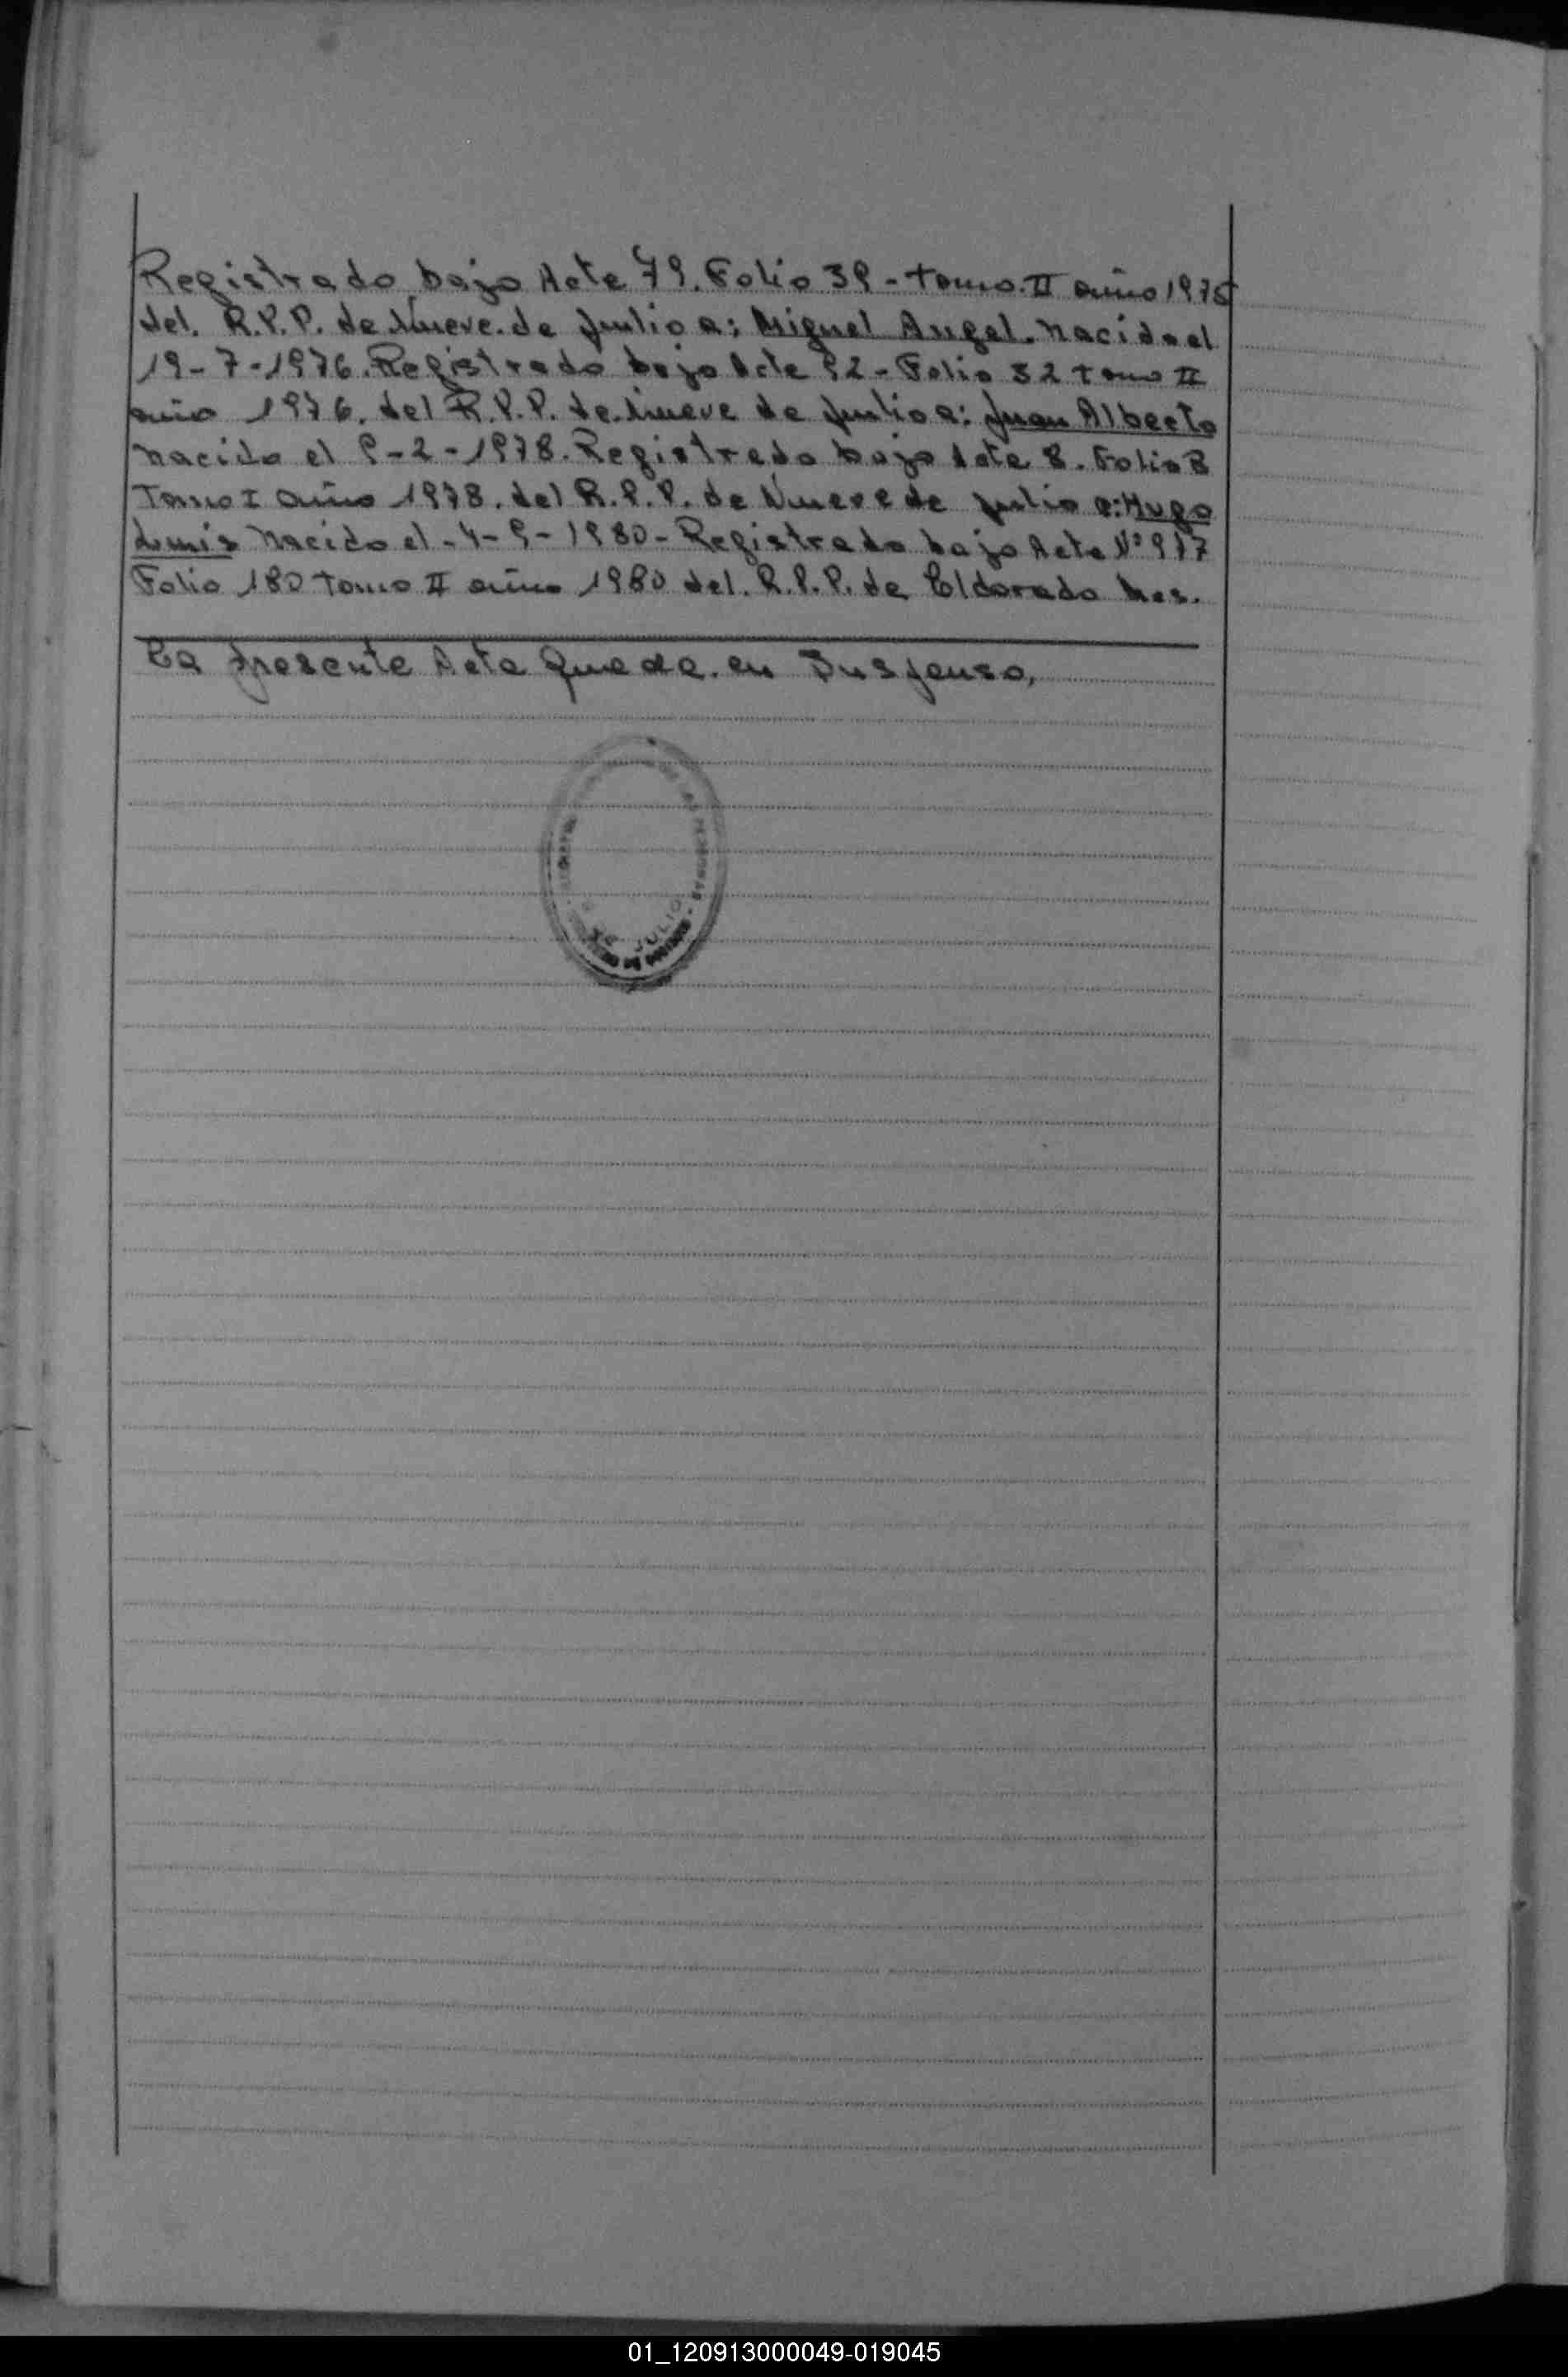 Registrado bajo Acta 79. Folio 39 - tomo. II año 1975
del. R.P.P. de Nueve. de Julio a: Miguel Angel. nacido el
19-7-1976. Registrado bajo Acta 92 - Folio 32 tomo II
año 1976. del R.P.P. de Nueve de Julio a: Juan Alberto
nacido el 9-2-1978. Registrado bajo Acta 8. Folio 8
Tomo I año 1978. del R.P.P. de Nueve de Julio a: Hugo
Luis nacido el - 4-9-1980 - Registrado bajo Acta Nº 917
Folio 180 tomo II año 1980 del. R.P.P. de Eldorado Mes.
La presente Acta Queda. en Suspenso,
DE JULIO
01_120913000049-019045